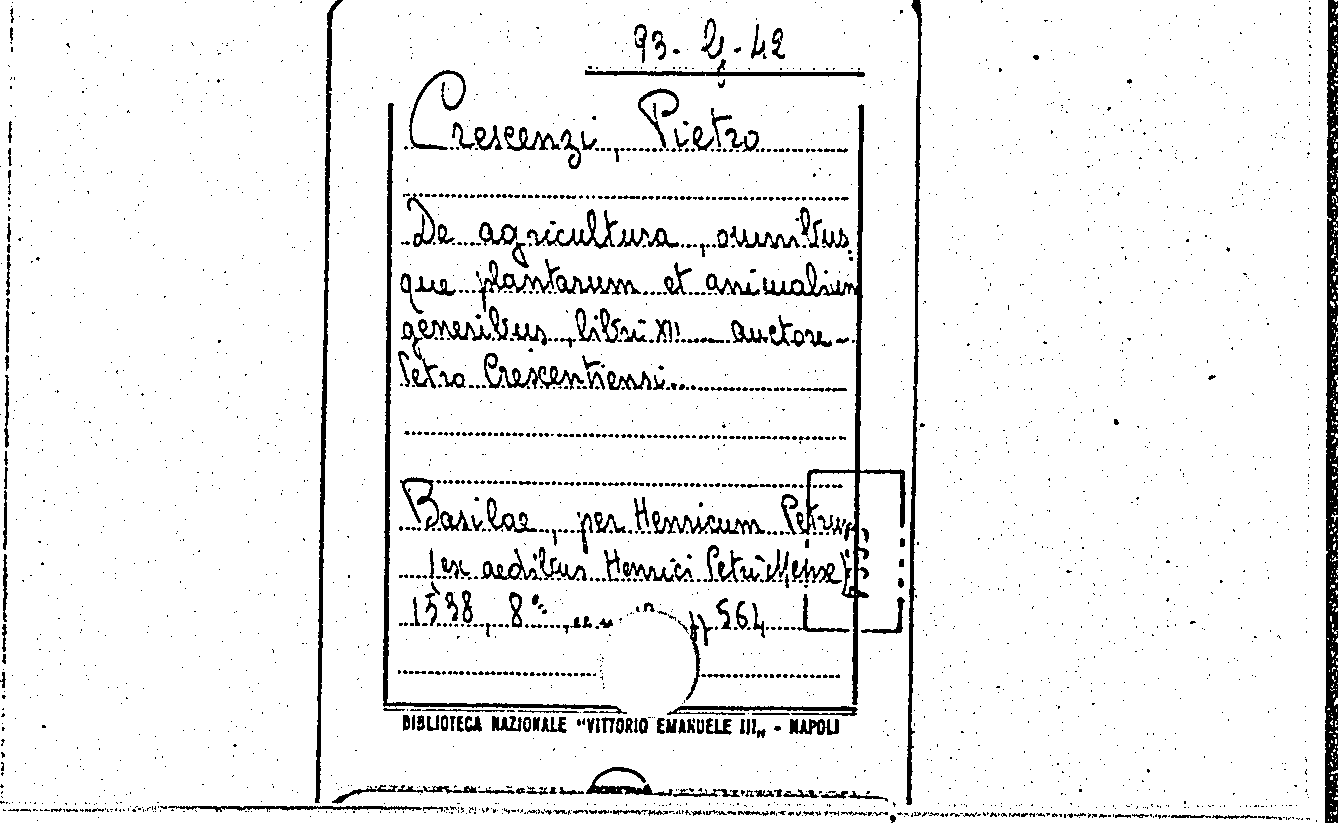 93- 4-42
Crescenzi, Pietro
De agricultura, omnibus
que plantarum et animalium
generibus, libri XII auctore
Petro Crescentiensi...
Basilae, per Henricum Petrum
(ex aedibus Henrici Petri Mense)
1538, 8° 564
BIBLIOTECA NAZIONALE "VITTORIO EMANUELE III„ - NAPOLI